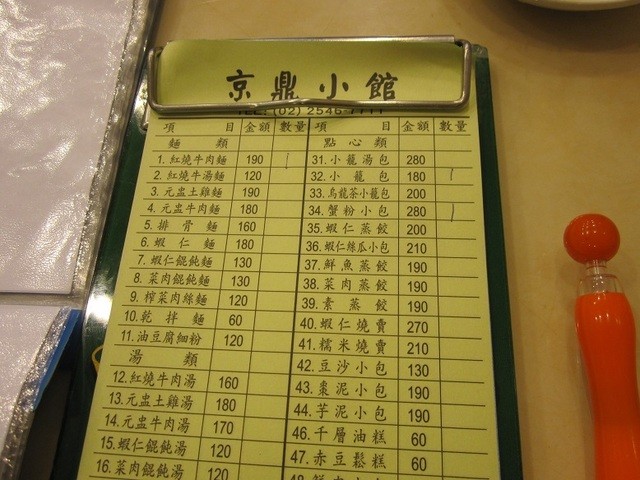 京鼎小館
TEL: (02) 2546-7711
項 目 金額 數量 項 目 金額 數量
麵 類 點 心 類
1. 紅燒牛肉麵 190 31. 小籠湯包 280
2. 紅燒牛湯麵 120 32. 小籠包 180
3. 元盅土雞麵 190 33. 烏龍茶小籠包 200
4. 元盅牛肉麵 180 34. 蟹粉小包 280
5. 排骨麵 160 35. 蝦仁蒸餃 200
6. 蝦仁麵 180 36. 蝦仁絲瓜小包 210
7. 蝦仁餛飩麵 130 37. 鮮魚蒸餃 190
8. 菜肉餛飩麵 130 38. 菜肉蒸餃 190
9. 榨菜肉絲麵 120 39. 素蒸餃 190
10. 乾拌麵 60 40. 蝦仁燒賣 270
11. 油豆腐細粉 120 41. 糯米燒賣 210
湯 類 42. 豆沙小包 130
12. 紅燒牛肉湯 160 43. 棗泥小包 190
13. 元盅土雞湯 180 44. 芋泥小包 190
14. 元盅牛肉湯 170 46. 千層油糕 60
15. 蝦仁餛飩湯 120 47. 赤豆鬆糕 60
16. 菜肉餛飩湯 120 48.